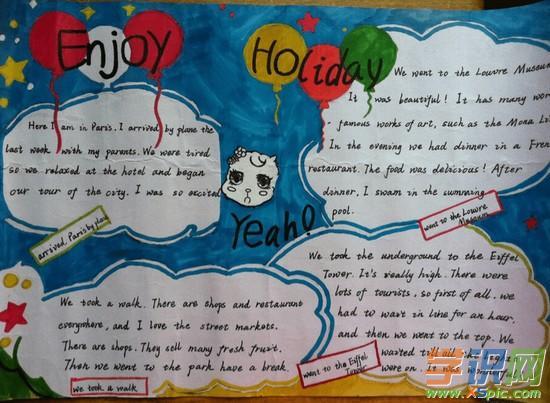 Enjoy
Holiday
Here I am in Paris. I arrived by plane the
last week with my parents. We were tired
so we relaxed at the hotel and began
our tour of the city. I was so excited
arrived Paris by plane
We went to the Louvre Museum
It was beautiful! It has many wor
famous works of art, such as the Mona Li
In the evening we had dinner in a Fren
restaurant. The food was delicious! After
dinner, I swam in the swmming
pool.
went to the Louvre
Museum
Yeah!
We took a walk. There are shops and restaurant
everywhere, and I love the street markets.
There are shops. They sell many fresh fruit.
Then we went to the park have a break.
we took a walk
We took the underground to the Eiffel
Tower. It's really high. There were
lots of tourists, so first of all, we
had to wait in line for an hour.
and then we went to the top. We
waited till all the light
were on. It was wonderful
went to the Eiffel
Tower
www.XSpic.com